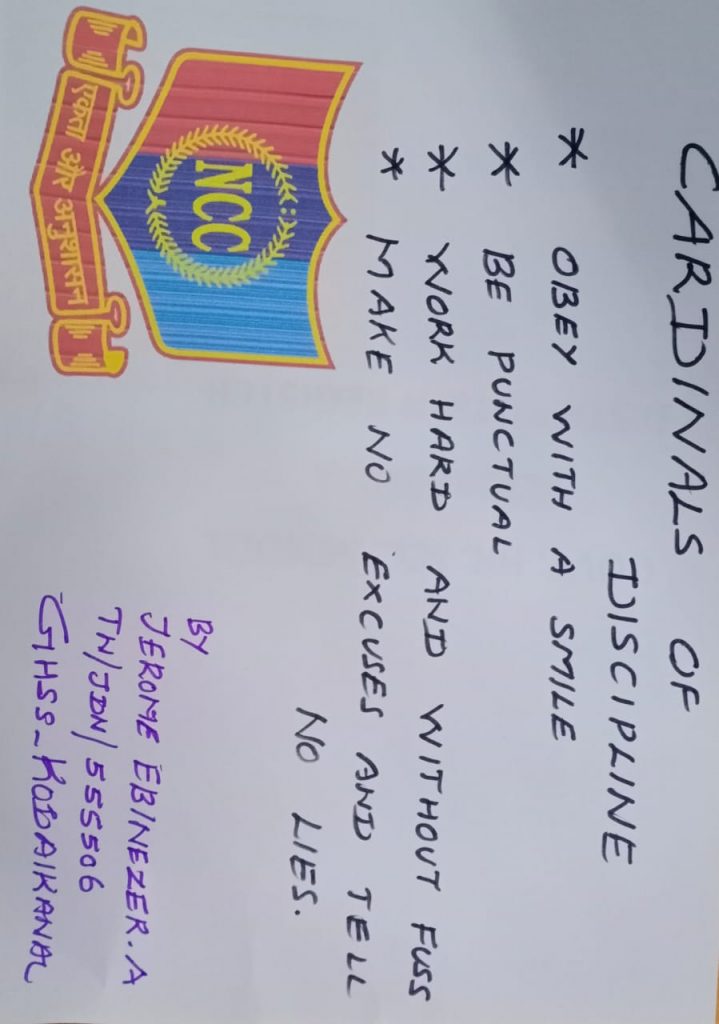 CARDINALS OF
DISCIPLINE
* OBEY WITH A SMILE
* BE PUNCTUAL
* WORK HARD AND WITHOUT FUSS
* MAKE NO EXCUSES AND TELL
NO LIES.
NCC
एकता और अनुशासन
BY
JEROME EBINEZER.A
TN/JDN/555506
GHSS-KODAIKANAL